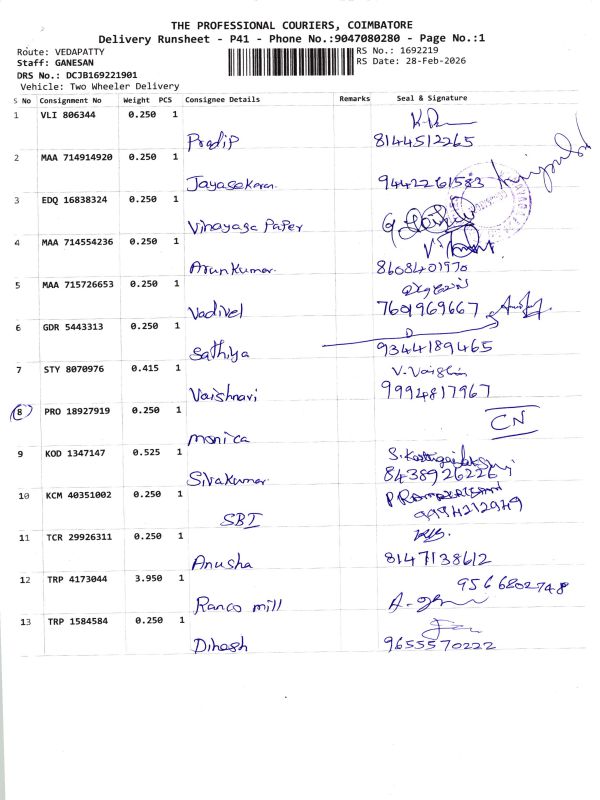 THE PROFESSIONAL COURIERS, COIMBATORE
Delivery Runsheet - P41 - Phone No.:9047080280 - Page No.:1
Route: VEDAPATTY
RS No.: 1692219
Staff: GANESAN
RS Date: 28-Feb-2026
DRS No.: DCJB169221901
Vehicle: Two Wheeler Delivery
S No Consignment No Weight PCS Consignee Details Remarks Seal & Signature
1 VLI 806344 0.250 1
Pradip 8144512265
2 MAA 714914920 0.250 1
Jayasekaran 9442261583
3 EDQ 16838324 0.250 1
Vinayaga Paper
4 MAA 714554236 0.250 1
Arunkumar 8608401970
5 MAA 715726653 0.250 1
Vadivel 7601969667
6 GDR 5443313 0.250 1
Sathiya 9344189465
7 STY 8070976 0.415 1
Vaishnavi 9994817967
8 PRO 18927919 0.250 1
CN
monica
9 KOD 1347147 0.525 1
Sivakumar 8438926226
10 KCM 40351002 0.250 1
SBI 9994212949
11 TCR 29926311 0.250 1
Anusha 8147138612
12 TRP 4173044 3.950 1
9566802748
Ranco mill
13 TRP 1584584 0.250 1
Dihash 9655570222